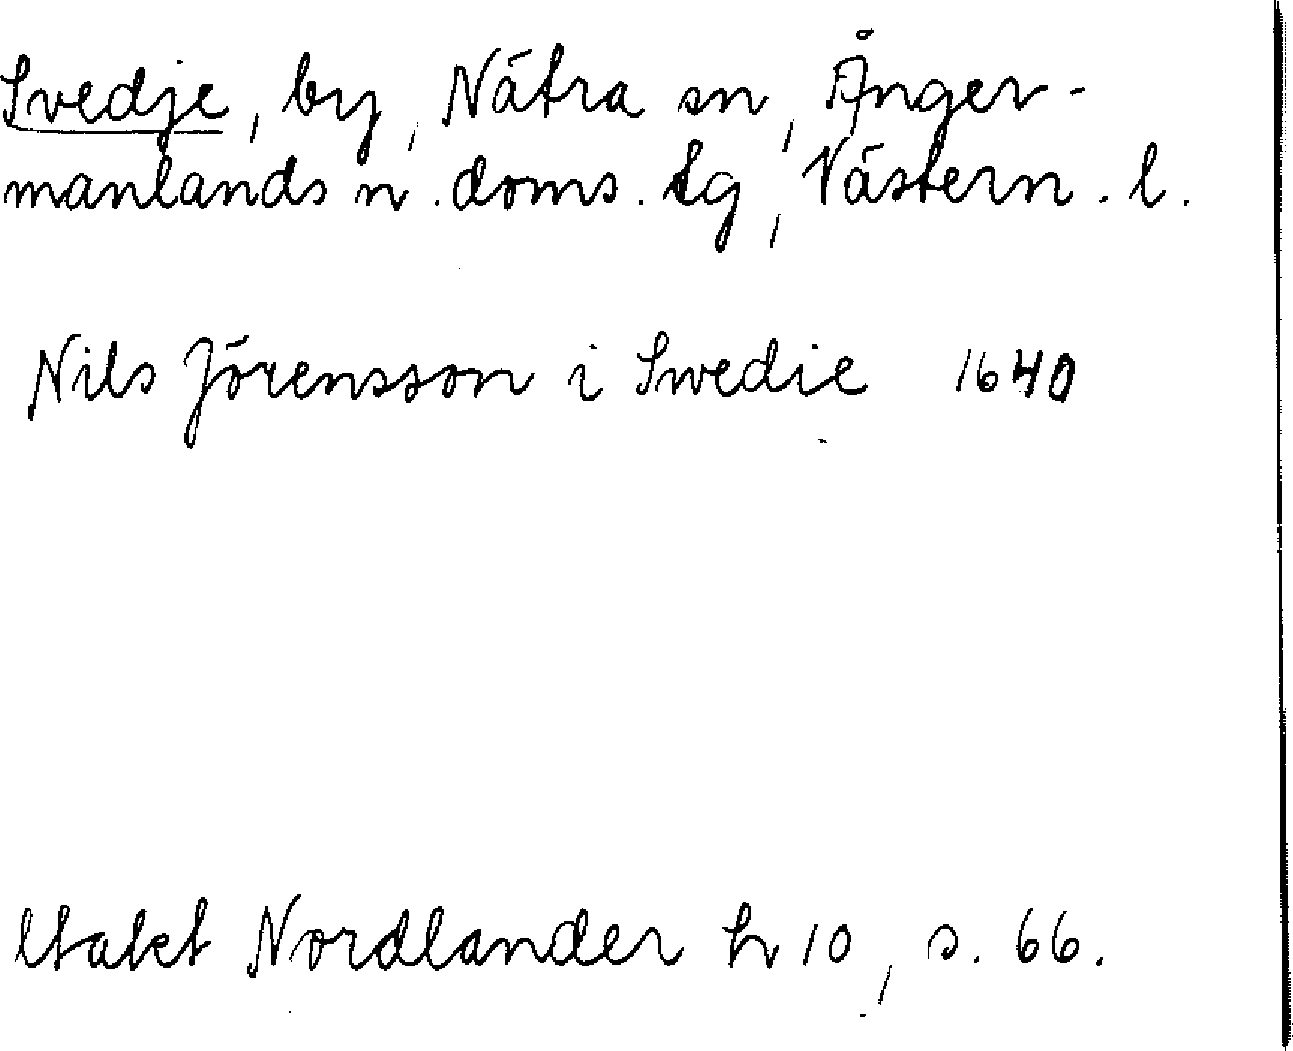 Svedje, by, Nätra sn, Ånger-
manlands n. doms. tg, Västern. l.
Nils Jörensson i Swedie 1640
Nordlander h 10, s. 66.